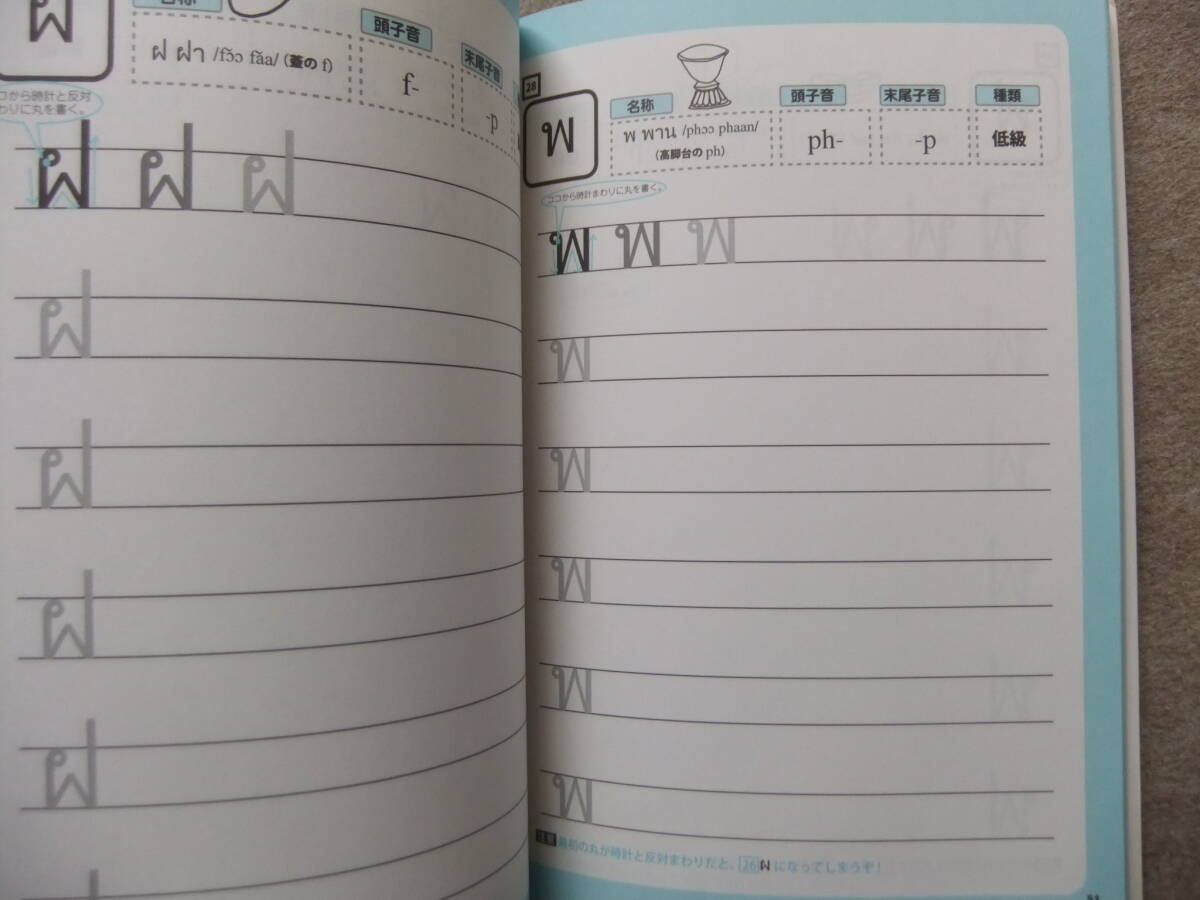 ฝ
名称
ฝ ฝา /fɔ̌ɔ fǎa/ (蓋の f)
頭子音
f-
末尾子音
-p
ココから時計と反対
まわりに丸を書く。
ฝ ฝ ฝ
ฝ
ฝ
ฝ
ฝ
28
พ
名称
พ พาน /phɔɔ phaan/
(高脚台の ph)
頭子音
ph-
末尾子音
-p
種類
低級
ココから時計まわりに丸を書く。
พ พ พ
พ
พ
พ
พ
พ
注意 最初の丸が時計と反対まわりだと、26 ผ になってしまうぞ！